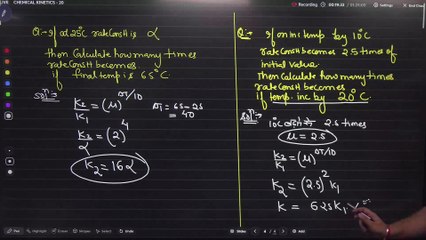 LIVE
CHEMICAL KINETICS - 20
Q:- If at 25°C rate consH is α
then Calculate how many times
rate consH becomes
if final temp. is 65°C.
Solⁿ:-
K₂/K₁ = (μ)^ΔT/10
ΔT = 65-25
= 40
K₂/α = (2)⁴
K₂ = 16α
Q:- If on inc temp by 10°C
rate consH becomes 2.5 times of
initial value
Then Calculate how many times
rate consH becomes
if temp. inc by 20°C
Solⁿ:-
10°C 2.5 times
μ = 2.5
K₂/K₁ = (μ)^ΔT/10
K₂ = (2.5)² K₁
K = 6.25K₁